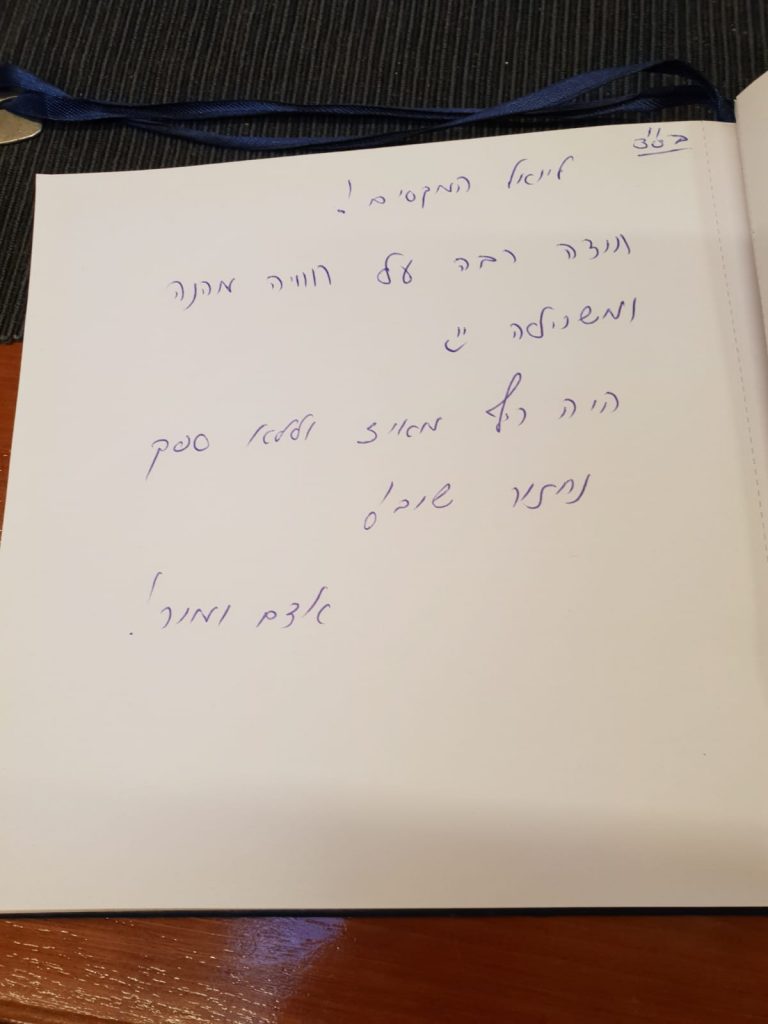 בס"ד
ליואל המקסים!
תודה רבה על חוויה מהנה
ומשכילה
היה כיף מאוד וללא ספק
נחזור שוב!
אדם ומור!